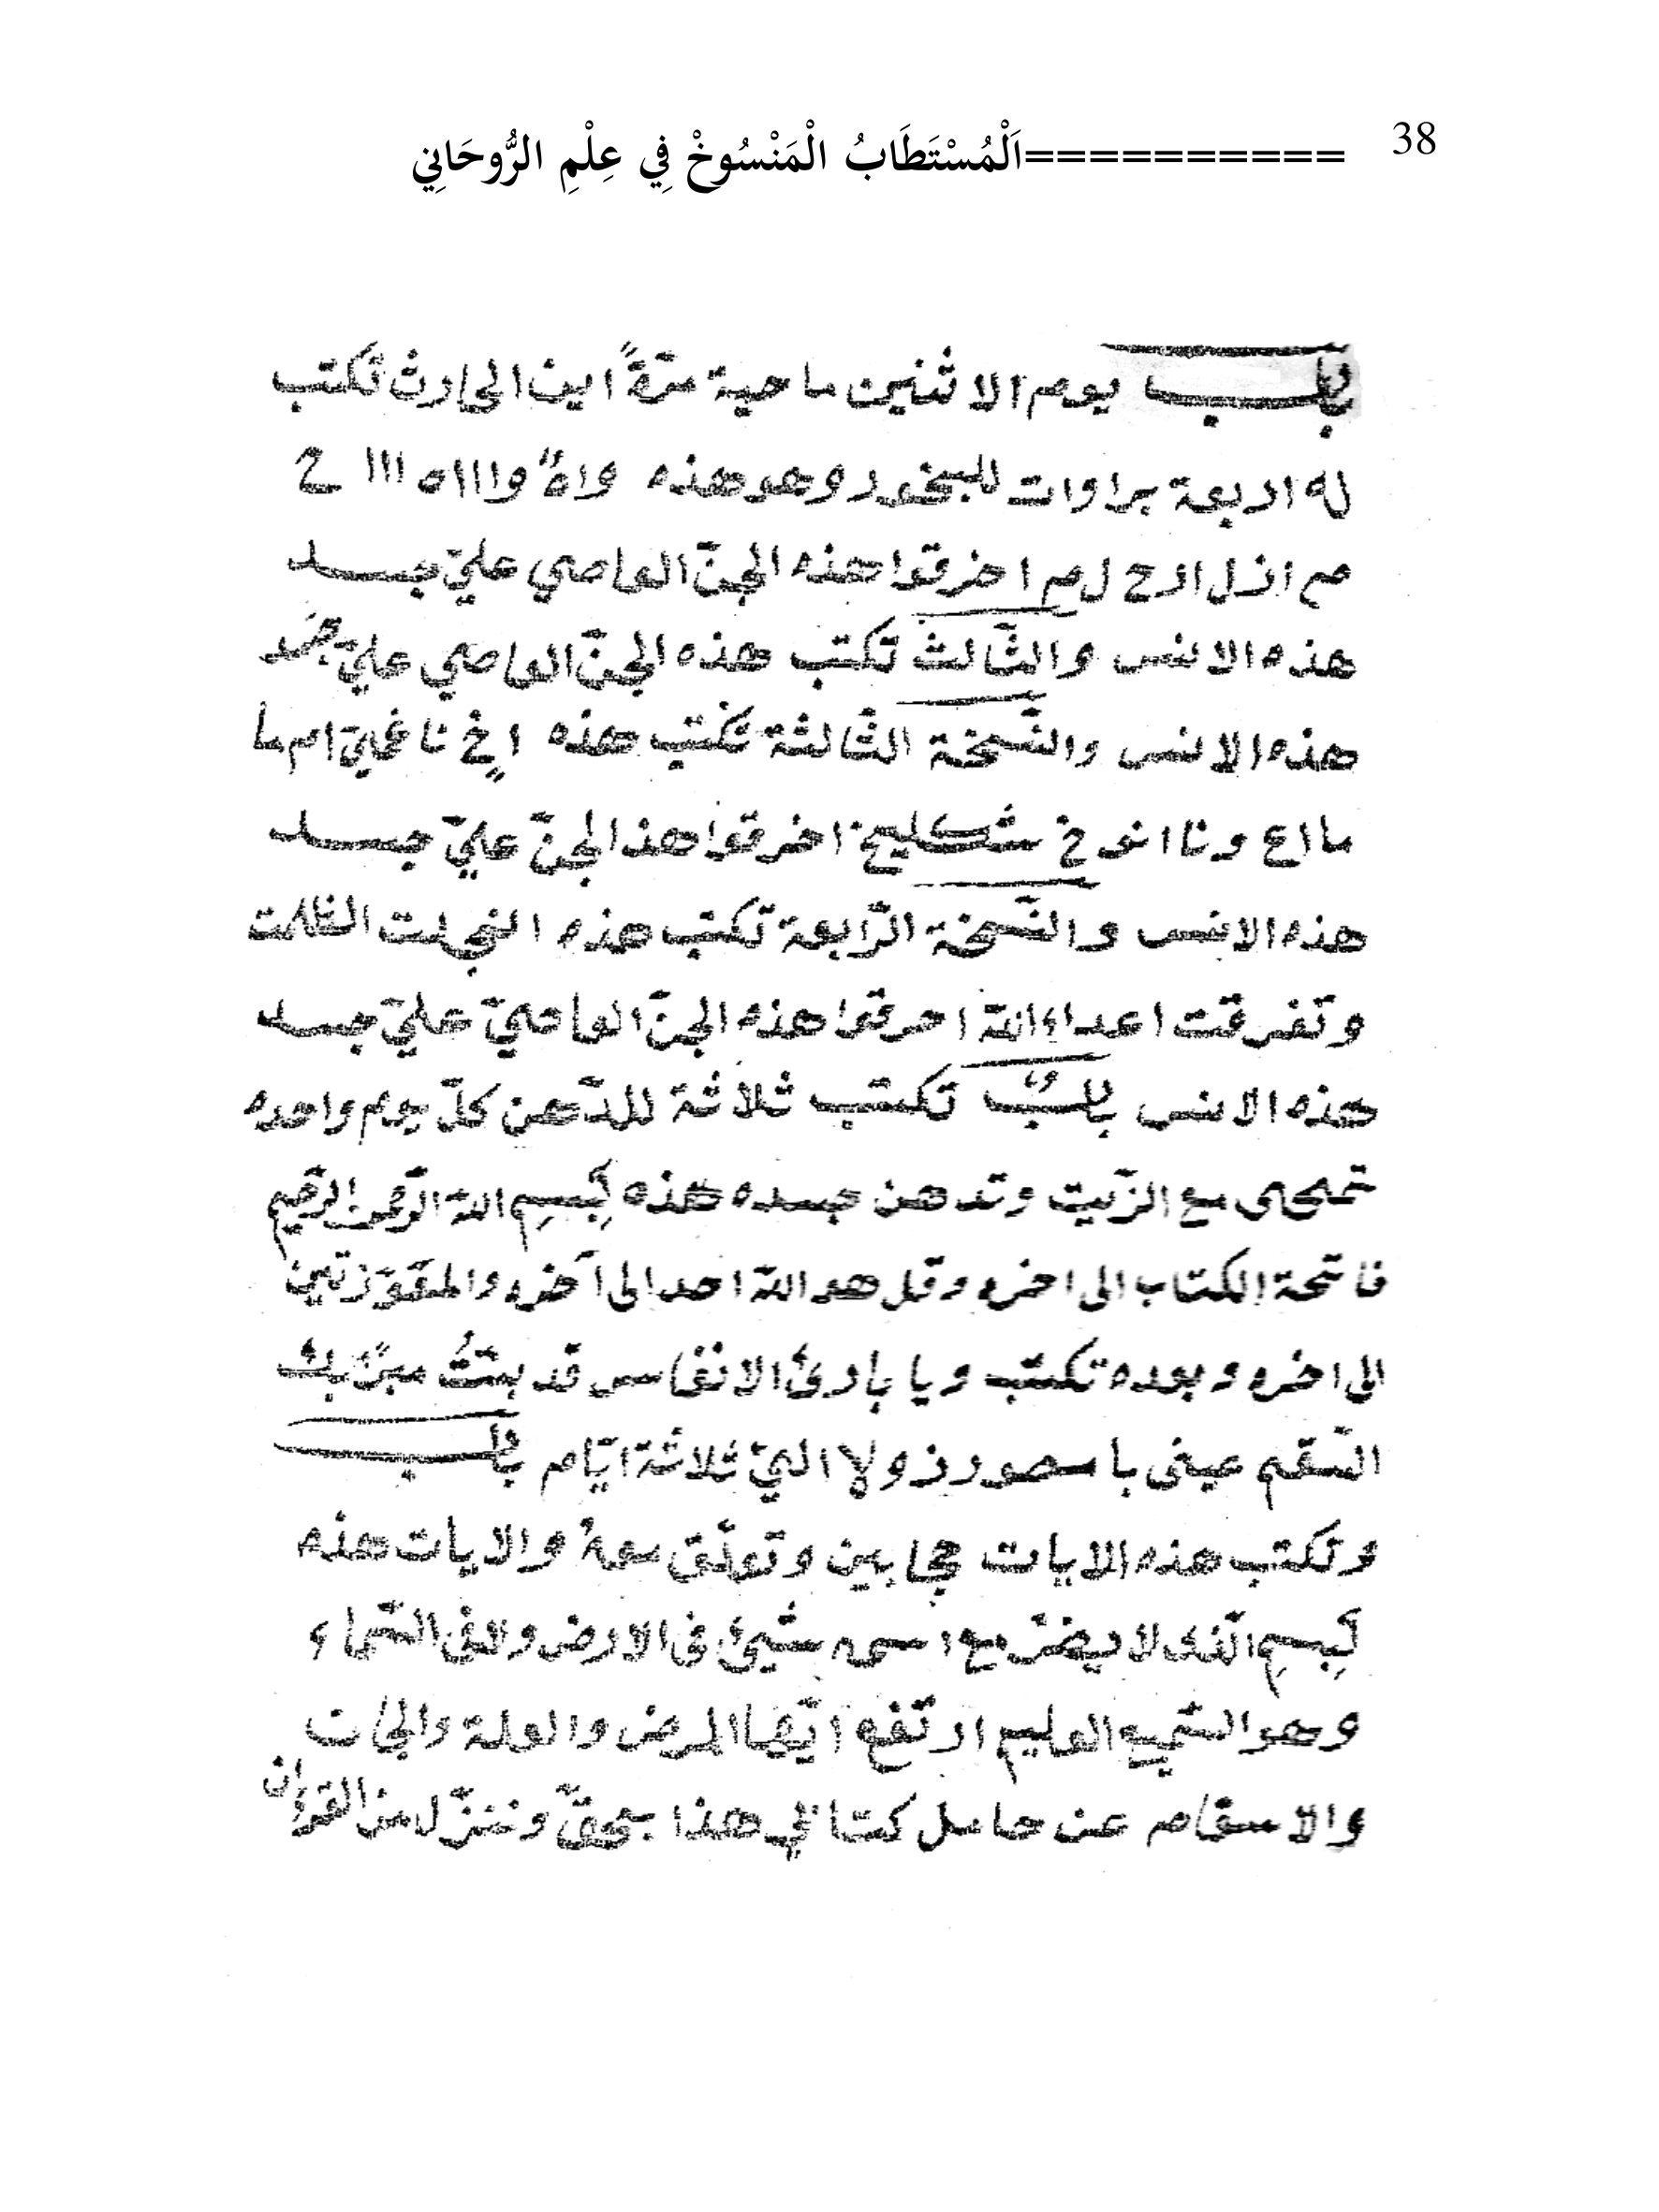 38 ==========اَلْمُسْتَطَابُ الْمَنْسُوخْ فِي عِلْمِ الرُّوحَانِي
باب يوم الاثنين صاحبة مرّةً ابن الحارث تكتب
له اربعة براوات للبخور وهو هذه
احرقوا هذه الجنّ العاصي عليّ جسد
هذه الانس والثّالث تكتب هذه الجنّ العاصي عليّ جسد
هذه الانس والنّسخة الثّالثة تكتب هذه
شكليخ احرقوا هذا الجنّ عليّ جسد
هذه الانس والنّسخة الرّابعة تكتب هذه النجلت الظلمت
وتفرقت اعداء اللّه احرقوا هذه الجنّ العاصيّ عليّ جسد
هذه الانس باب تكتب ثلاثة للدّهن كلّ يوم واحده
تمحى مع الزّيت وتدهن جسده هذه بِسمِ اللّه الرّحمن الرّحيم
فاتحة الكتاب الى اخره وقل هو اللّه احد الى آخره والمعوّذتين
الى اخره وبعده تكتب ويا بارئ الانفاس قد
السّقم عنى ثلاثة ايّام باب
وتكتب هذه الايات حجابين وتعلّق معهُ والايات هذه
بِسمِ الّذى لا يضرّ مع اسمه شيئ فى الارض ولا فى السّماء
وهو السّميع العليم ارتفع ايّها المرض والعلة والجان
والاسقام عن حامل كتابي هذا بحقّ وننزّل من القرءان